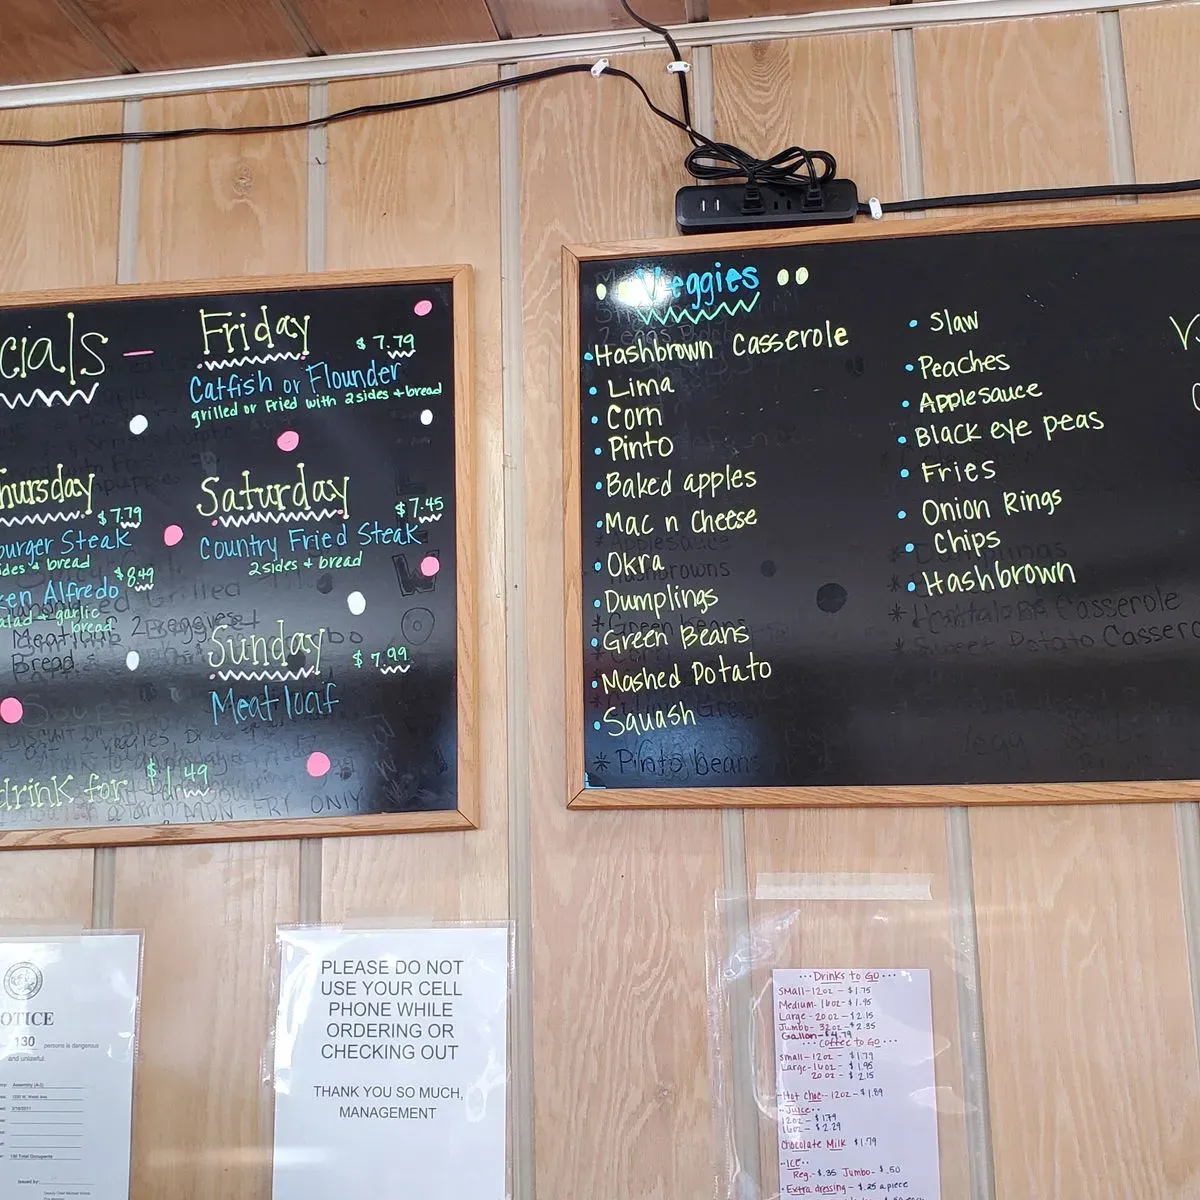 cials –
Friday
$7.79
Catfish or Flounder
grilled or Fried with 2 sides + bread
hursday
$7.79
burger Steak
ides & bread
ken Alfredo $8.49
alad + garlic
bread
Saturday
$7.45
Country Fried Steak
2 sides & bread
Sunday
$7.99
Meat loaf
drink for $1.49
Veggies
• Hashbrown Casserole
• Lima
• Corn
• Pinto
• Baked apples
• Mac n Cheese
• Okra
• Dumplings
• Green Beans
• Mashed Potato
• Squash
* Pinto beans
• Slaw
• Peaches
• Applesauce
• Black eye peas
• Fries
• Onion Rings
• Chips
• Hashbrown
OTICE
130 persons is dangerous
and unlawful.
PLEASE DO NOT
USE YOUR CELL
PHONE WHILE
ORDERING OR
CHECKING OUT
THANK YOU SO MUCH,
MANAGEMENT
Drinks to Go
Small - 12oz - $1.75
Medium - 16oz - $1.95
Large - 20oz - $2.15
Jumbo - 32oz - $2.35
Gallon - $4.79
Coffee to Go
Small - 12oz - $1.79
Large - 16oz - $1.95
20oz - $2.15
Hot Choc - 12oz - $1.89
Juice
12oz - $1.79
16oz - $2.29
Chocolate Milk $1.79
ICE
Reg. - $.35 Jumbo - $.50
• Extra dressing - $.25 a piece